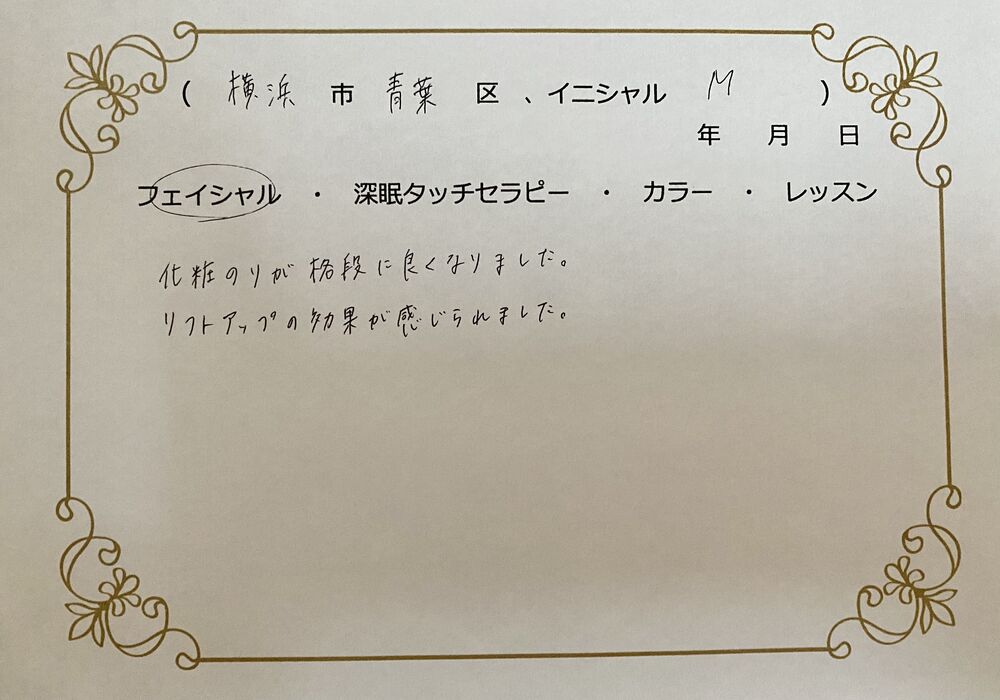 ( 横浜 市 青葉 区 、イニシャル M )
年 月 日
フェイシャル ・ 深眠タッチセラピー ・ カラー ・ レッスン
化粧のりが 格段に良くなりました。
リフトアップの効果が感じられました。